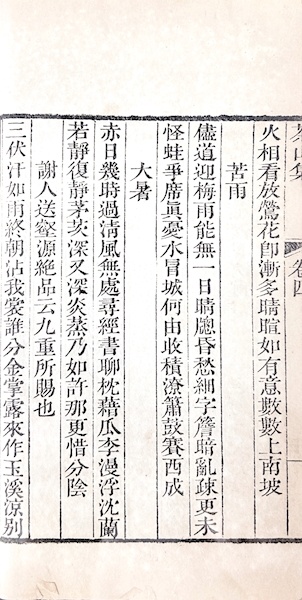 茶山集
卷四
火相看放鶯花卽漸多晴暄如有意數數上南坡
苦雨
儘道迎梅雨能無一日晴牎昏愁細字簷暗亂疎更未
怪蛙爭席眞憂水冒城何由收積潦簫鼓賽西成
大暑
赤日幾時過淸風無處尋經書聊枕藉瓜李漫浮沈蘭
若靜復靜茅茨深又深炎蒸乃如許那更惜分陰
謝人送壑源絶品云九重所賜也
三伏汗如雨終朝沾我裳誰分金掌露來作玉溪涼別